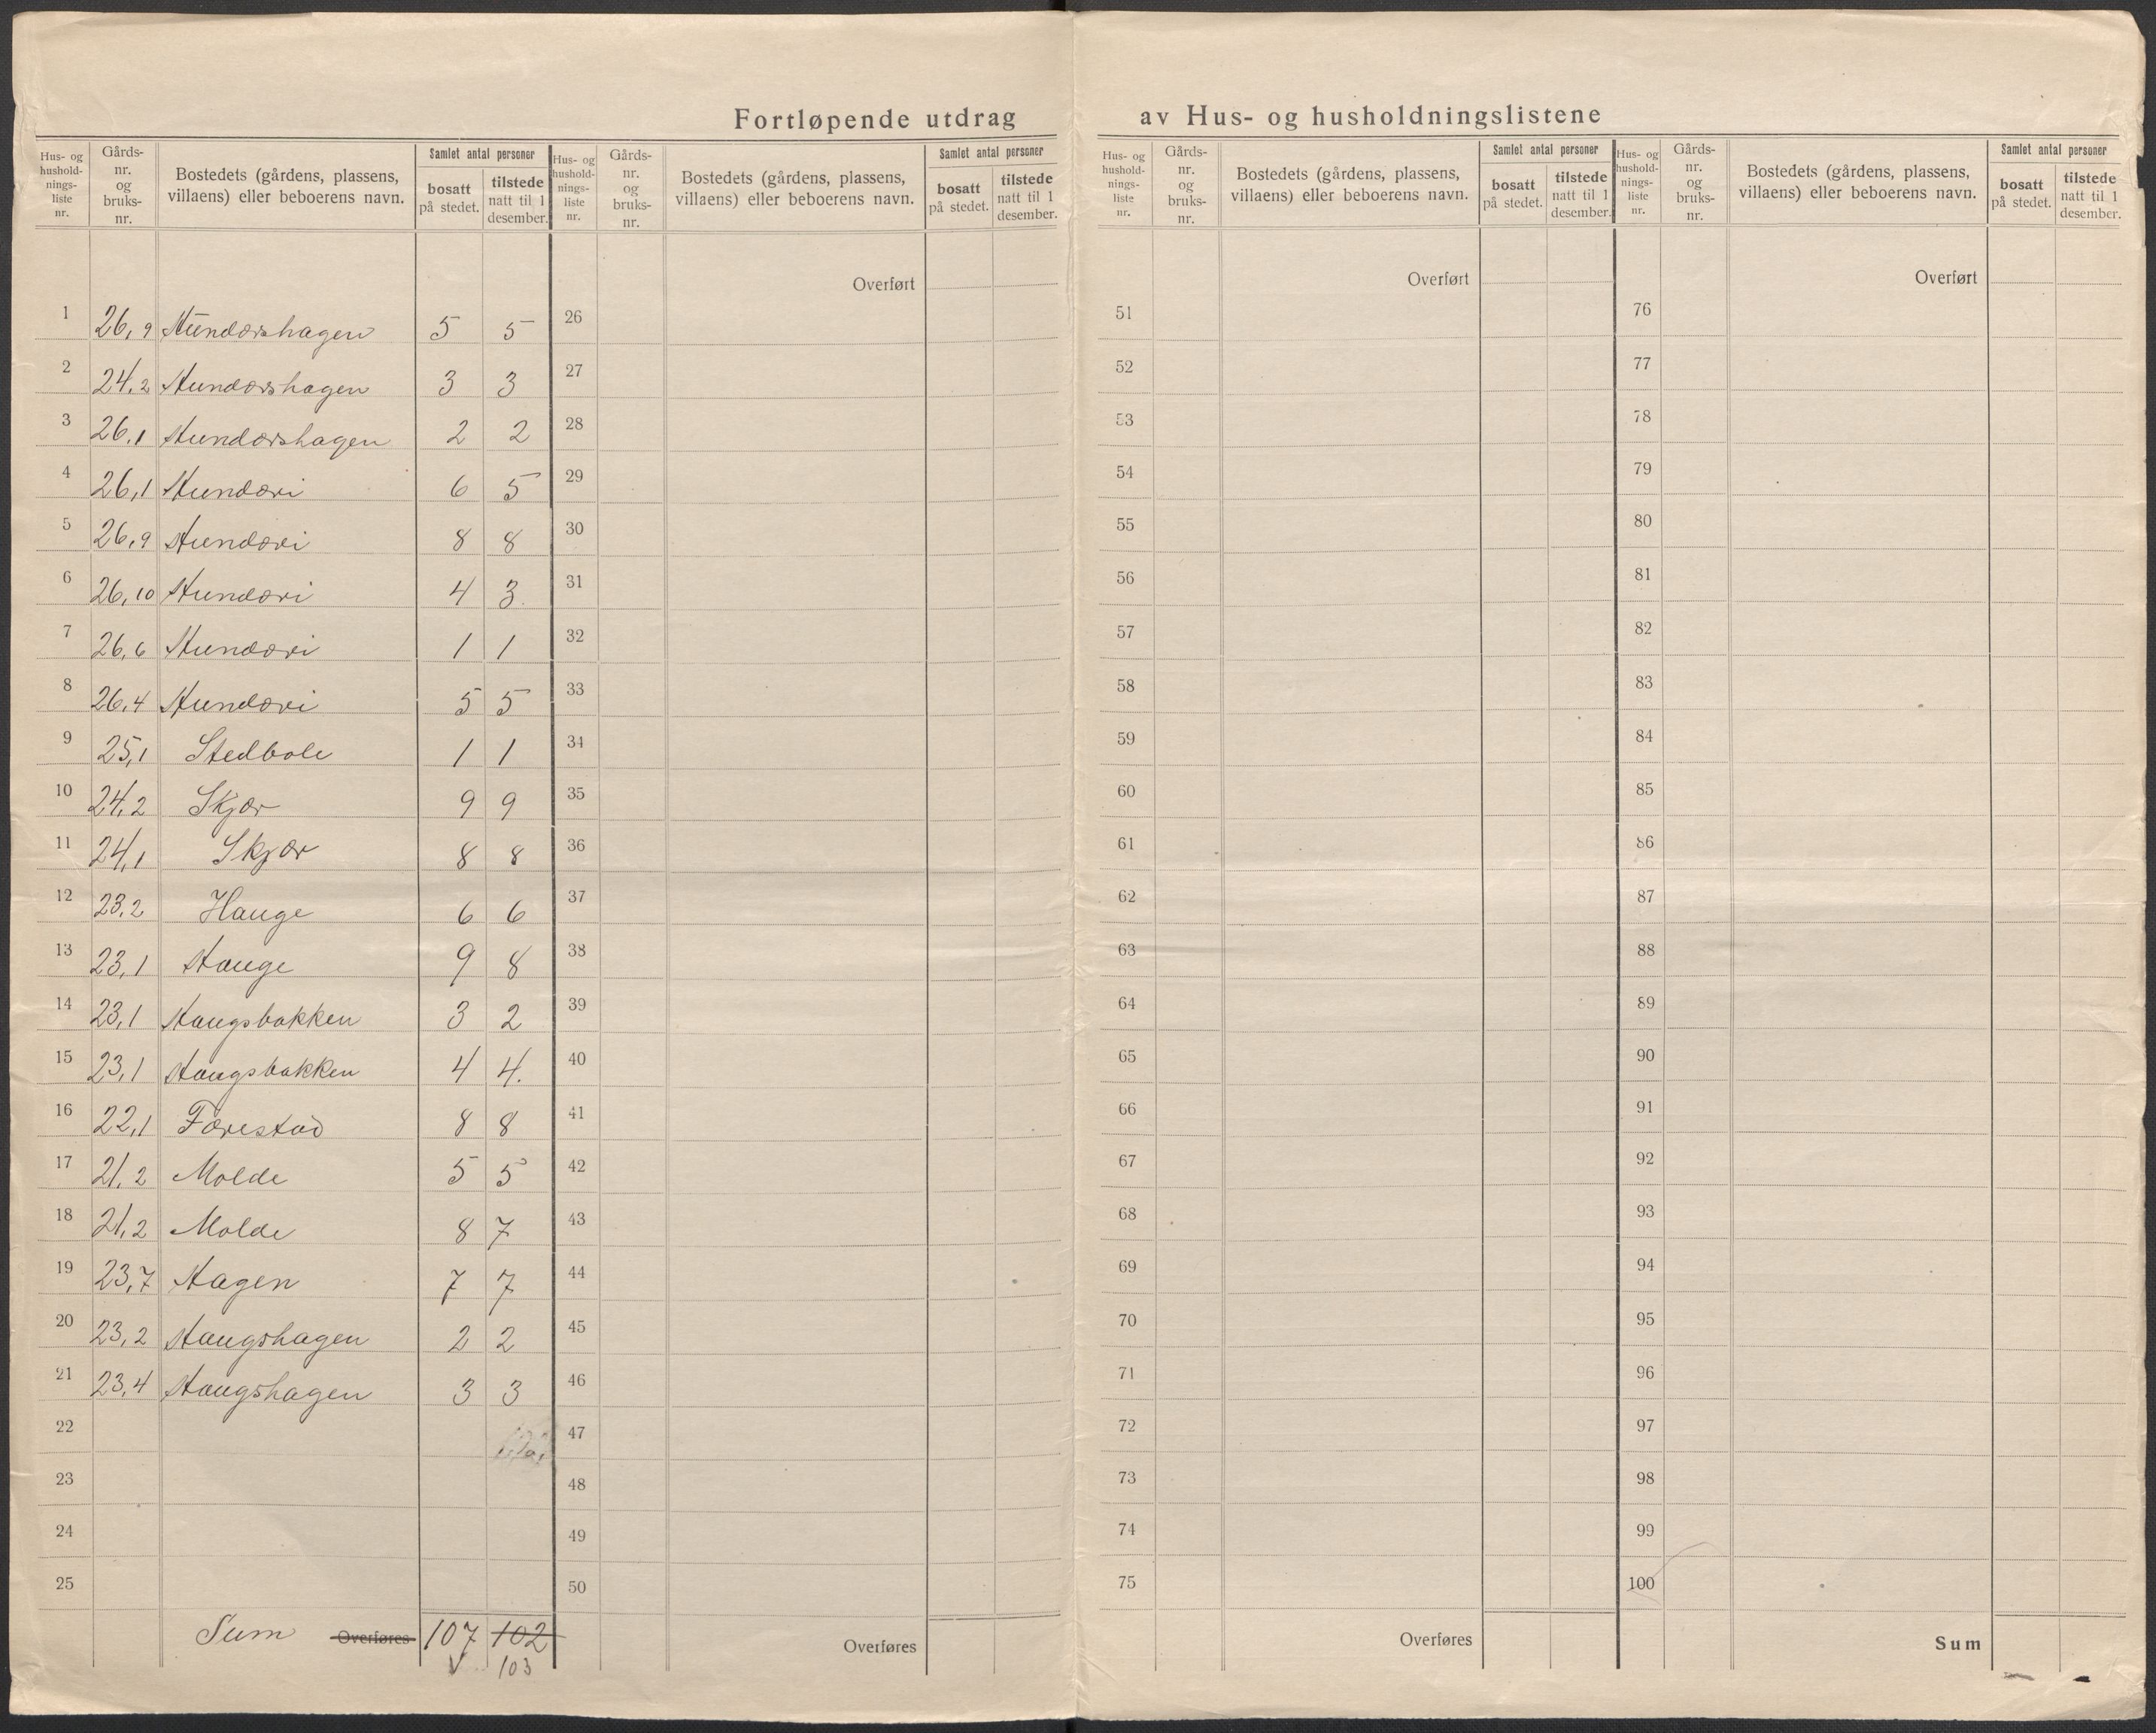 Fortløpende utdrag av Hus- og husholdningslistene
Hus- og hushold-nings-liste nr. Gårds-nr. og bruks-nr. Bostedets (gårdens, plassens, villaens) eller beboerens navn. Samlet antal personer bosatt på stedet. tilstede natt til 1 desember.
Hus- og hushold-nings-liste nr. Gårds-nr. og bruks-nr. Bostedets (gårdens, plassens, villaens) eller beboerens navn. Samlet antal personer bosatt på stedet. tilstede natt til 1 desember.
Hus- og hushold-nings-liste nr. Gårds-nr. og bruks-nr. Bostedets (gårdens, plassens, villaens) eller beboerens navn. Samlet antal personer bosatt på stedet. tilstede natt til 1 desember.
Hus- og hushold-nings-liste nr. Gårds-nr. og bruks-nr. Bostedets (gårdens, plassens, villaens) eller beboerens navn. Samlet antal personer bosatt på stedet. tilstede natt til 1 desember.
Overført Overført Overført
1 26,9 Hundørshagen 5 5 26 51 76
2 24,2 Hundørshagen 3 3 27 52 77
3 26,1 Hundørshagen 2 2 28 53 78
4 26,1 Hundøri 6 5 29 54 79
5 26,9 Hundøri 8 8 30 55 80
6 26,10 Hundøri 4 3 31 56 81
7 26,6 Hundøri 1 1 32 57 82
8 26,4 Hundøri 5 5 33 58 83
9 25,1 Stedbole 1 1 34 59 84
10 24,2 Skjør 9 9 35 60 85
11 24,1 Skjør 8 8 36 61 86
12 23,2 Hauge 6 6 37 62 87
13 23,1 Hauge 9 8 38 63 88
14 23,1 Haugsbakken 3 2 39 64 89
15 23,1 Haugsbakken 4 4. 40 65 90
16 22,1 Førestad 8 8 41 66 91
17 21,2 Molde 5 5 42 67 92
18 21,2 Molde 8 7 43 68 93
19 23,7 Hagen 7 7 44 69 94
20 23,2 Haugshagen 2 2 45 70 95
21 23,4 Haugshagen 3 3 46 71 96
22 47 72 97
23 48 73 98
24 49 74 99
25 50 75 100
Sum Overføres 107 102 Overføres Overføres Sum
V 103